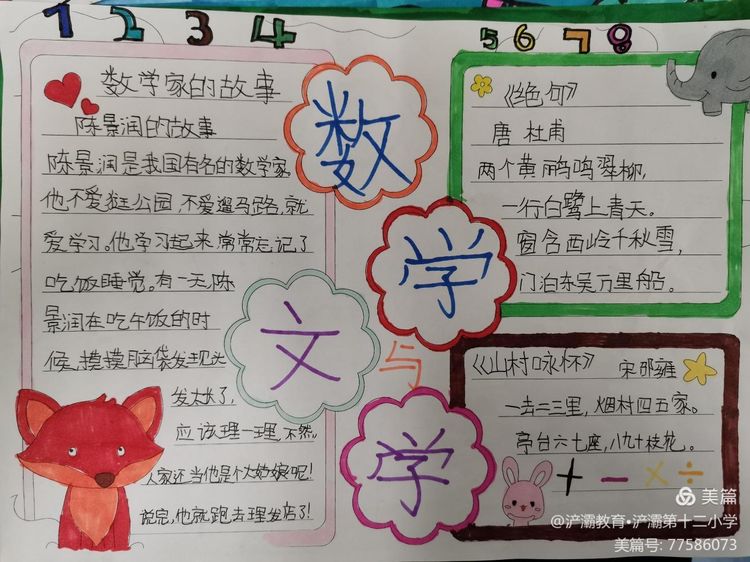 1 2 3 4
5 6 7 8
数学家的故事
陈景润的故事
陈景润是我国有名的数学家,
他不爱逛公园,不爱遛马路,就
爱学习。他学习起来,常常忘记了
吃饭睡觉。有一天,陈
景润在吃午饭的时
候,摸摸脑袋发现头
发太长了,
应该理一理,不然,
人家还当他是个大姑娘呢!
说完,他就跑去理发店了!
数
学
文
与
学
《绝句》
唐 杜甫
两个黄鹂鸣翠柳,
一行白鹭上青天。
窗含西岭千秋雪,
门泊东吴万里船。
《山村咏怀》 宋邵雍
一去二三里,烟村四五家。
亭台六七座,八九十枝花。
+ - × ÷
美篇
@浐灞教育·浐灞第十二小学
美篇号: 77586073